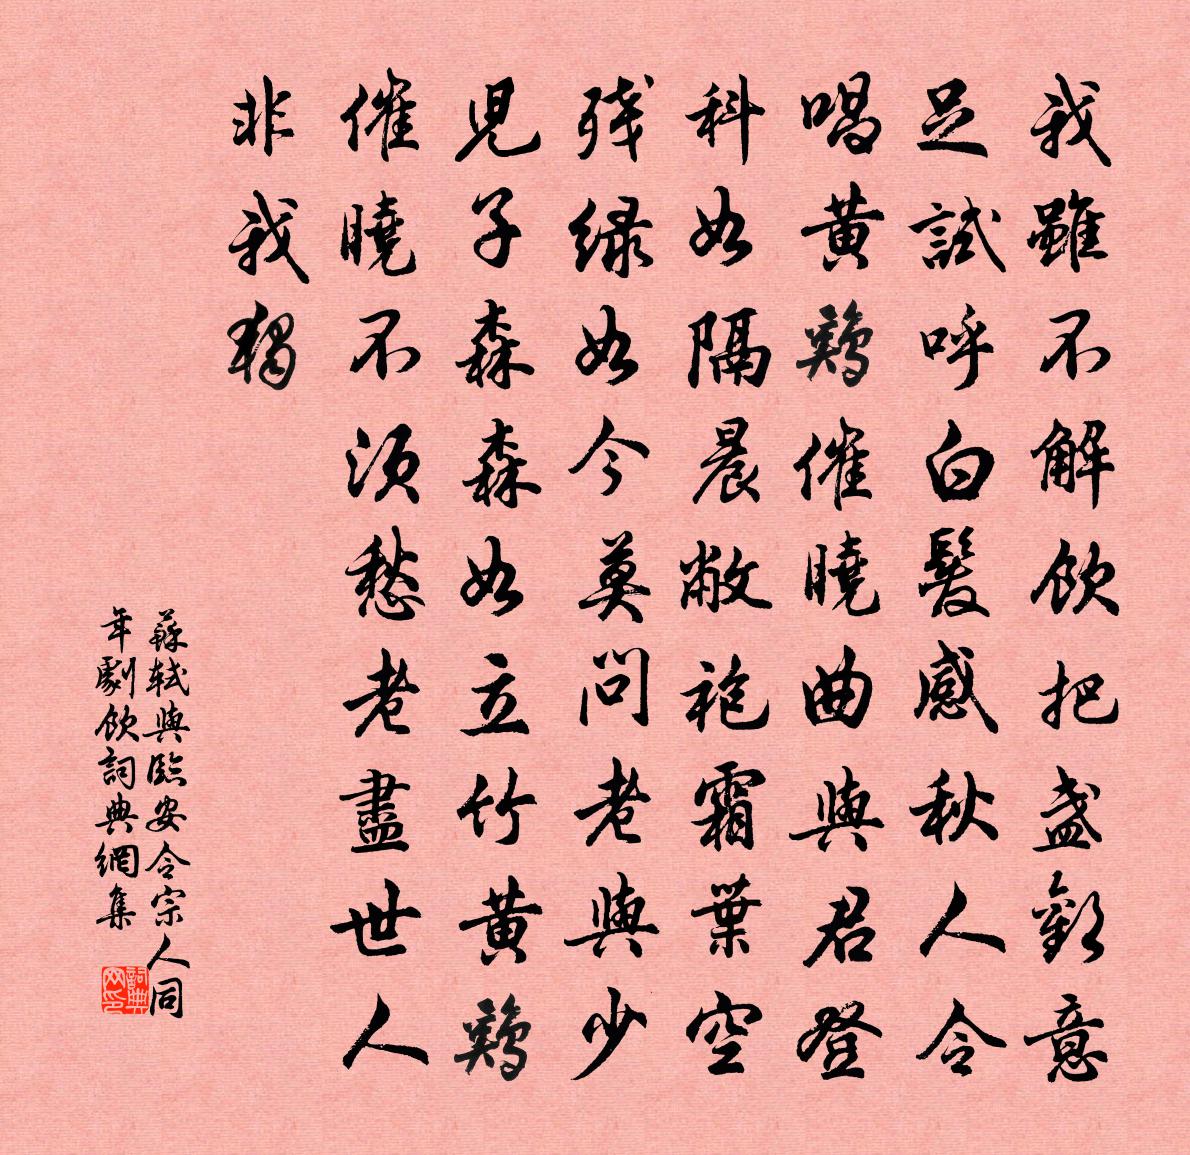 我雖不解飲把盞歡意
足試呼白髮感秋人令
唱黃鷄催曉曲與君登
科如隔晨敝袍霜葉空
残緑如今莫問老與少
児子森森如立竹黃鷄
催曉不須愁老盡世人
非我獨
蘇軾與臨安令宗人同
年劇飲詞典網集
詞典
网印